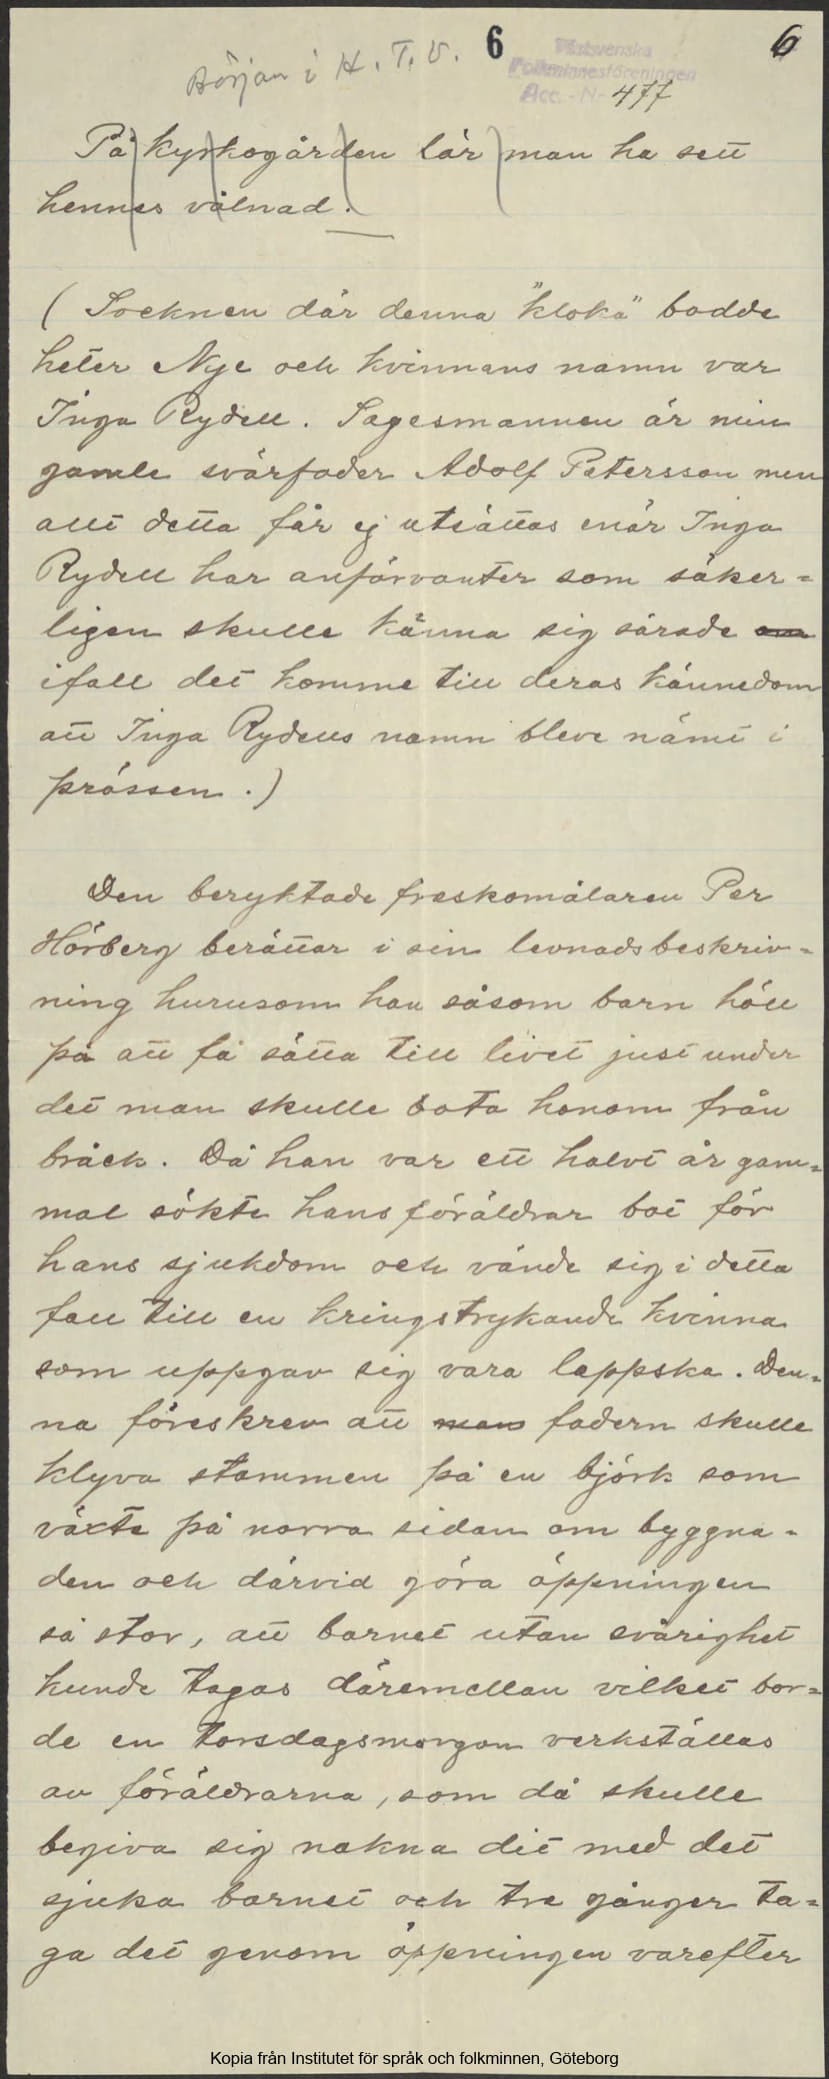 Början i H. T. V. 6 6
Västsvenska
Folkminnesföreningen
Acc. - N- 477
På kyrkogården lär man ha sett
hennes vålnad.
( Socknen där denna "kloka" bodde
heter Nye och kvinnans namn var
Inga Rydell. Sagesmannen är min
gamle svärfader Adolf Petersson men
allt detta får ej utsättas enär Inga
Rydell har anförvanter som säker=
ligen skulle känna sig sårade om
ifall det komme till deras kännedom
att Inga Rydells namn bleve nämt i
prässen.)
Den beryktade freskomålaren Per
Hörberg berättar i sin levnadsbeskriv=
ning hurusom han såsom barn höll
på att få sätta till livet just under
det man skulle bota honom från
bråck. Då han var ett halvt år gam=
mal sökte hans föräldrar bot för
hans sjukdom och vände sig i detta
fall till en kringstrykande kvinna
som uppgav sig vara lappska. Den=
na föreskrev att man fadern skulle
klyva stammen på en björk som
växte på norra sidan om byggna=
den och därvid göra öppningen
så stor, att barnet utan svårighet
kunde tagas däremellan vilket bor=
de en torsdagsmorgon verkställas
av föräldrarna, som då skulle
begiva sig nakna dit med det
sjuka barnet och tre gånger ta=
ga det genom öppningen varefter
Kopia från Institutet för språk och folkminnen, Göteborg